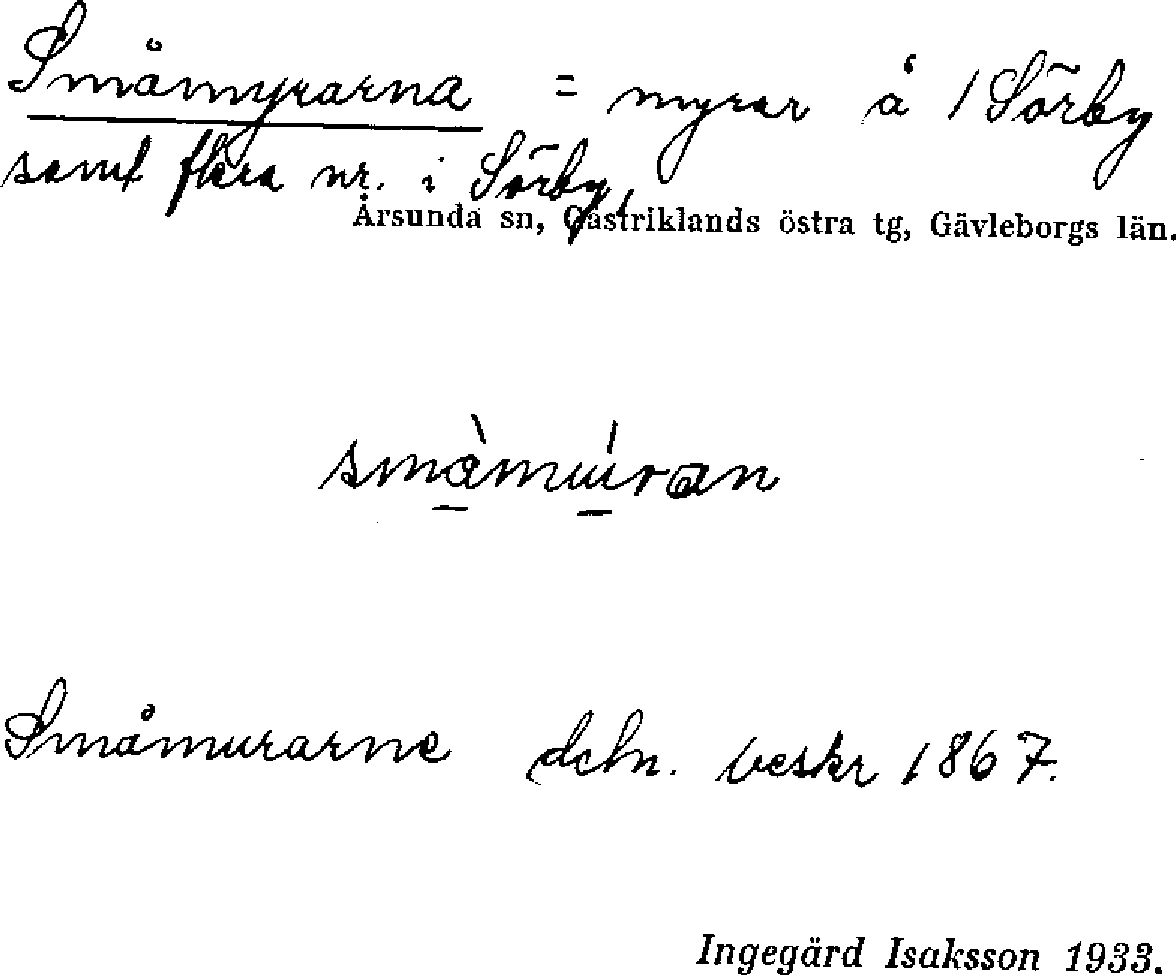 Småmyrarna = myrar å 1 Sörby
samt flera nr. i Sörby,
Årsunda sn, Gästriklands östra tg, Gävleborgs län.
småmúran
Småmurarne dchn. beskr 1867.
Ingegärd Isaksson 1933.